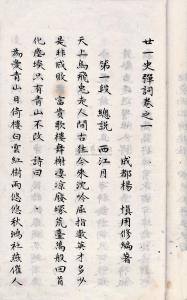 廿一史彈詞卷之一
成都楊 慎用修編著
第一段 總說 西江月
天上烏飛兔走人間古往今來沈吟屈指數英才多少
是非成敗 富貴歌樓舞榭淒涼廢塚荒臺萬般回首
化塵埃只有青山不改 詩曰
為愛青山日倚樓白雲紅樹兩悠悠秋鴻社燕催人